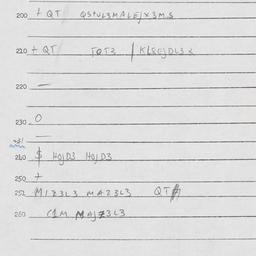 200 + QT QSTUL3MALEJX3MS
210 + QT TQT3 / KLSGJDL3X
220 —
230 O
—
240 $ HGJD3 HGJD3
250 +
252 M1Z3L3 MAZ3L3 QT
260 C1M MAJZ3L3